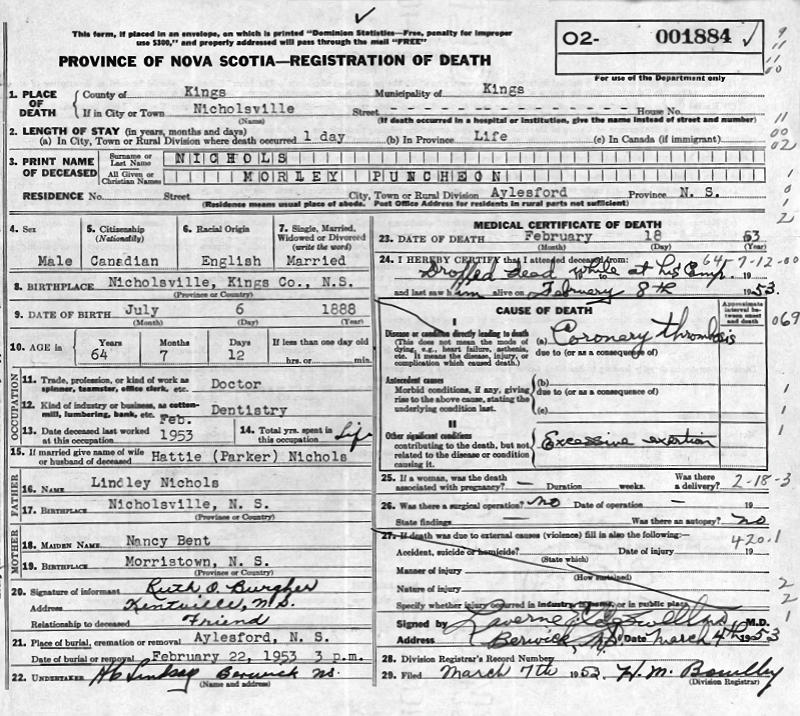 This form, if placed in an envelope, on which is printed "Dominion Statistics—Free, penalty for improper
use $300," and properly addressed will pass through the mail "FREE"
O2- 001884
For use of the Department only
PROVINCE OF NOVA SCOTIA—REGISTRATION OF DEATH
1. PLACE OF DEATH County of Kings Municipality of Kings
If in City or Town Nicholsville Street House No.
(Name) (If death occurred in a hospital or institution, give the name instead of street and number)
2. LENGTH OF STAY (in years, months and days)
(a) In City, Town or Rural Division where death occurred 1 day (b) In Province Life (c) In Canada (if immigrant)
3. PRINT NAME OF DECEASED
Surname or Last Name NICHOLS
All Given or Christian Names MORLEY PUNCHEON
RESIDENCE No. Street City, Town or Rural Division Aylesford Province N. S.
(Residence means usual place of abode. Post Office Address for residents in rural parts not sufficient)
4. Sex Male
5. Citizenship (Nationality) Canadian
6. Racial Origin English
7. Single, Married, Widowed or Divorced (write the word) Married
8. BIRTHPLACE Nicholsville, Kings Co., N.S.
(Province or Country)
9. DATE OF BIRTH July 6 1888
(Month) (Day) (Year)
10. AGE in Years Months Days If less than one day old
64 7 12 hrs. or min.
OCCUPATION
11. Trade, profession, or kind of work as spinner, teamster, office clerk, etc. Doctor
12. Kind of industry or business, as cotton-mill, lumbering, bank, etc. Dentistry
13. Date deceased last worked at this occupation Feb. 1953
14. Total yrs. spent in this occupation Life
15. If married give name of wife or husband of deceased Hattie (Parker) Nichols
FATHER
16. NAME Lindley Nichols
17. BIRTHPLACE Nicholsville, N. S.
(Province or Country)
MOTHER
18. MAIDEN NAME Nancy Bent
19. BIRTHPLACE Morristown, N. S.
(Province or Country)
20. Signature of informant Ruth O. Burgher
Address Kentville, N.S.
Relationship to deceased Friend
21. Place of burial, cremation or removal Aylesford, N. S.
Date of burial or removal February 22, 1953 3 p.m.
22. UNDERTAKER Lindsay Berwick NS.
(Name and address)
MEDICAL CERTIFICATE OF DEATH
23. DATE OF DEATH February 18 53
(Month) (Day) (Year)
24. I HEREBY CERTIFY that I attended deceased from: 64-7-12-00
Dropped dead while at his Camp. 19
and last saw him alive on February 8th 1953.
CAUSE OF DEATH
Approximate interval between onset and death
069
I
Disease or condition directly leading to death
(This does not mean the mode of dying, e.g., heart failure, asthenia, etc. It means the disease, injury, or complication which caused death.)
(a) Coronary thrombosis
due to (or as a consequence of)
Antecedent causes
Morbid conditions, if any, giving rise to the above cause, stating the underlying condition last.
(b)
due to (or as a consequence of)
(c)
II
Other significant conditions
contributing to the death, but not related to the disease or condition causing it.
Excessive exertion
25. If a woman, was the death associated with pregnancy? — Duration weeks. Was there a delivery? 2-18-3
26. Was there a surgical operation? No Date of operation — 19
State findings — Was there an autopsy? no
27. If death was due to external causes (violence) fill in also the following:—
420.1
Accident, suicide or homicide? Date of injury 19
(State which)
Manner of injury
(How sustained)
Nature of injury
Specify whether injury occurred in industry, in home, or in public place
Signed by M.D.
Address Berwick, NS Date March 4th 1953
28. Division Registrar's Record Number
29. Filed March 7th 1953 H. M.
(Division Registrar)